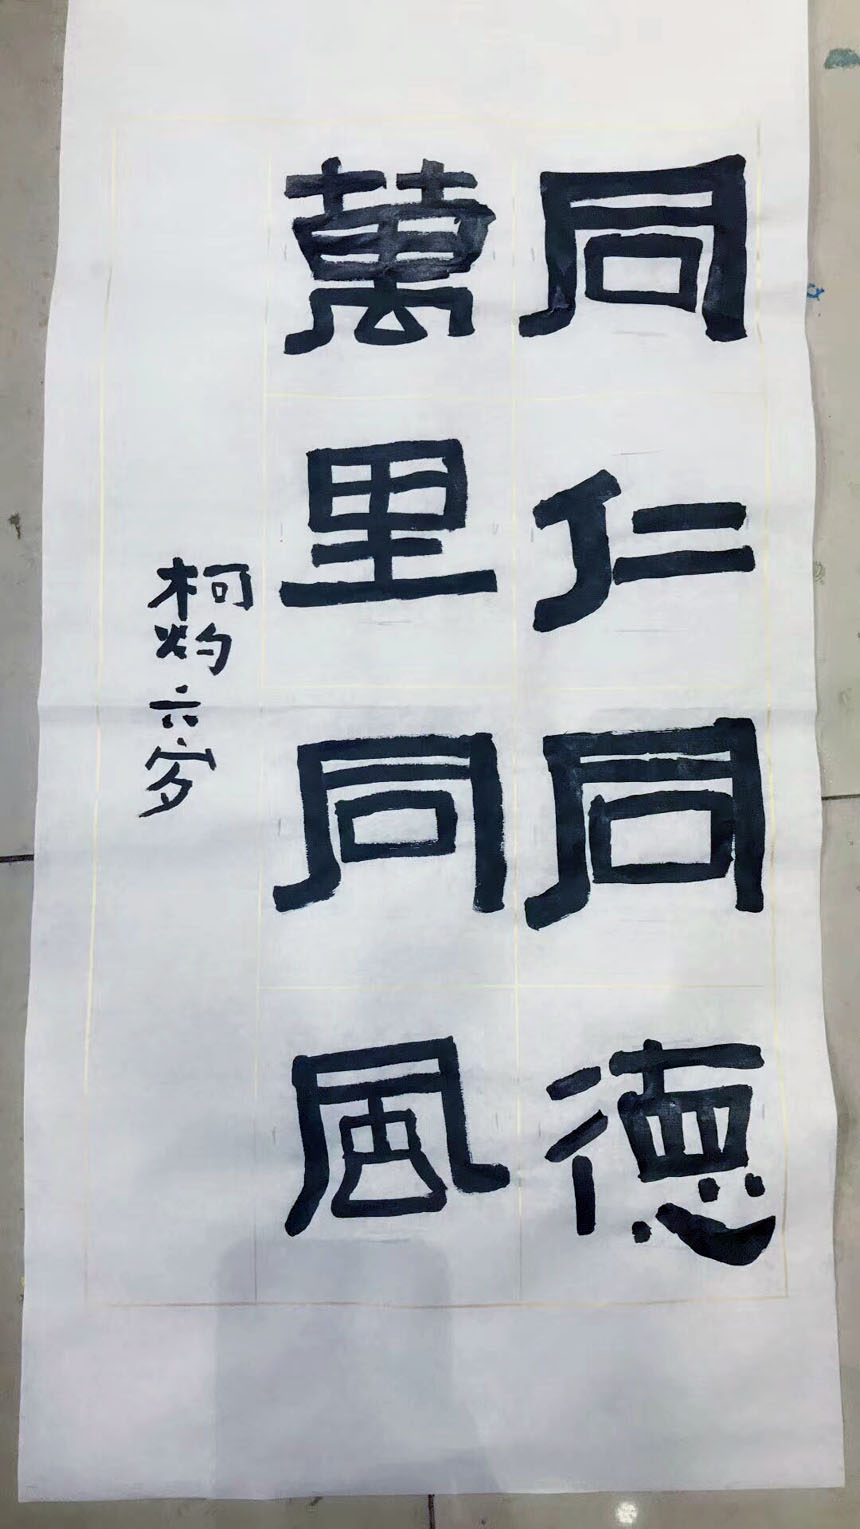 同仁同德
萬里同風
柯灼六岁